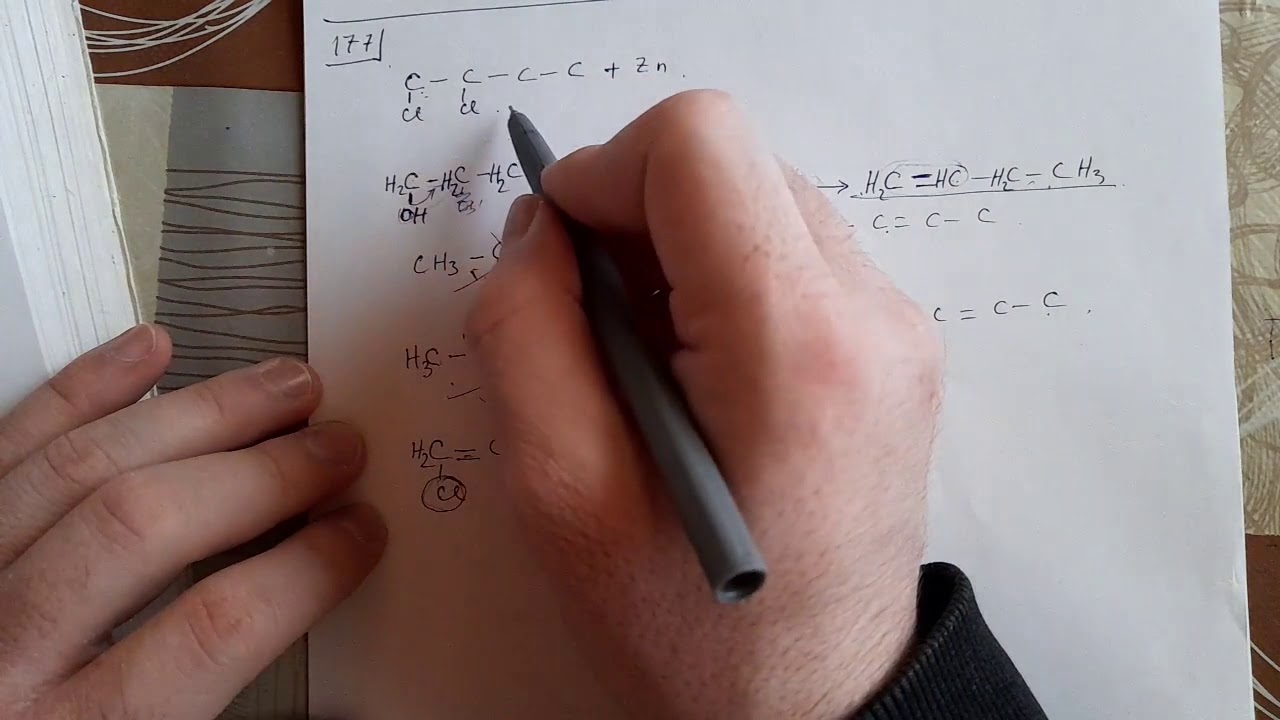 177
C – C – C – C + Zn
Cl Cl
H₂C – H₂C – H₂C → H₂C = HC – H₂C – CH₃
OH C = C – C
CH₃ –
C = C – C
H₃C –
H₂C = C
Cl